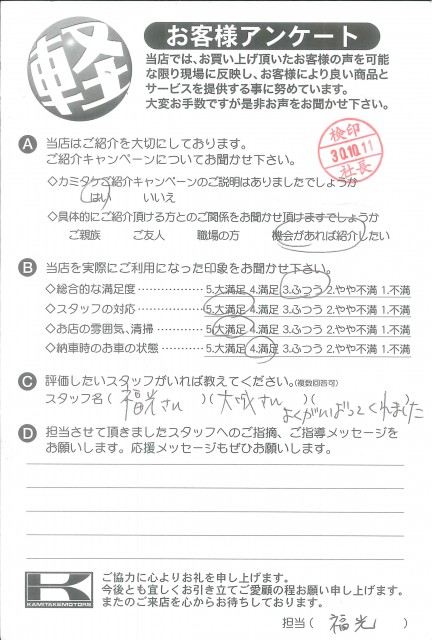 軽
お客様アンケート
当店では、お買い上げ頂いたお客様の声を可能
な限り現場に反映し、お客様により良い商品と
サービスを提供する事に努めています。
大変お手数ですが是非お声をお聞かせ下さい。
検印
30.10.11
社長
A 当店はご紹介を大切にしております。
ご紹介キャンペーンについてお聞かせ下さい。
◇カミタケご紹介キャンペーンのご説明はありましたでしょうか
はい いいえ
◇具体的にご紹介頂ける方とのご関係をお聞かせ頂けますでしょうか
ご親族 ご友人 職場の方 機会があれば紹介したい
B 当店を実際にご利用になった印象をお聞かせ下さい。
◇総合的な満足度 5.大満足 4.満足 3.ふつう 2.やや不満 1.不満
◇スタッフの対応 5.大満足 4.満足 3.ふつう 2.やや不満 1.不満
◇お店の雰囲気、清掃 5.大満足 4.満足 3.ふつう 2.やや不満 1.不満
◇納車時のお車の状態 5.大満足 4.満足 3.ふつう 2.やや不満 1.不満
C 評価したいスタッフがいれば教えてください。(複数回答可)
スタッフ名( 福光さん )( 大城さん )(
よくがんばってくれました
D 担当させて頂きましたスタッフへのご指摘、ご指導メッセージを
お願いします。応援メッセージもぜひお願いします。
K
KAMITAKEMOTORS
ご協力に心よりお礼を申し上げます。
今後とも宜しくお引き立てご愛顧の程お願い申し上げます。
またのご来店を心からお待ちしております。
担当( 福光 )